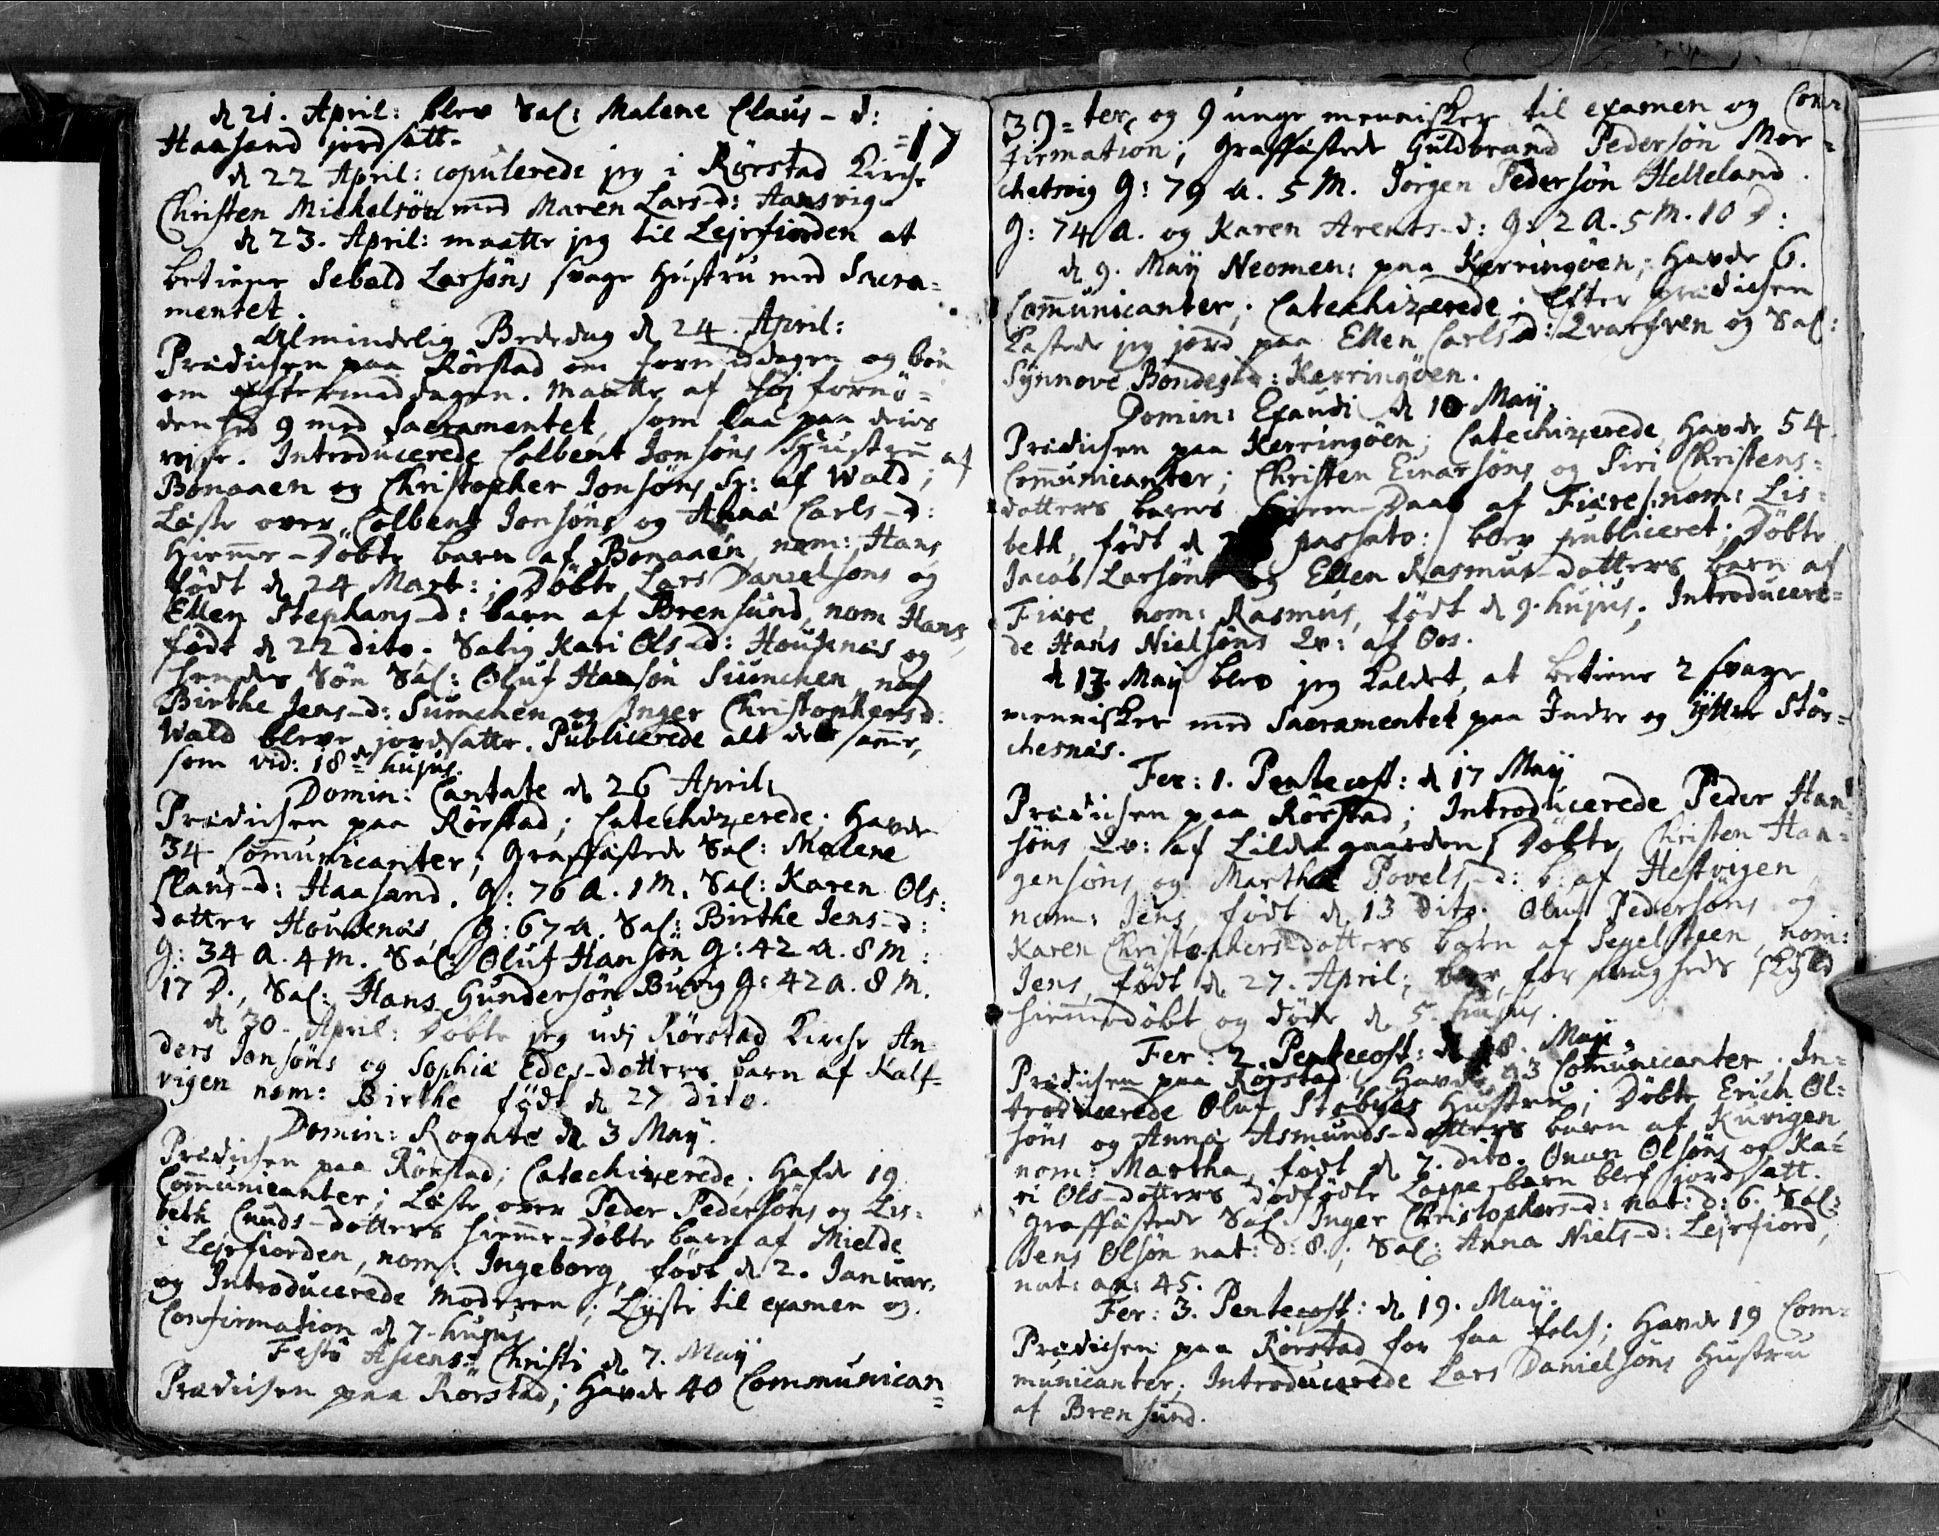 d. 21. April: blev Sal: Malene Claus-d:
Haasand jordsatt.
=17
d. 22 April: copulerede jeg i Rörstad Kirche
Christen Michelsön med Maren Lars-d: Hansvig.
d. 23. April: maatte jeg til Lejrfiorden at
betiene Sebald Larsöns svage Hustru med Sacra=
mentet.
Almindelig Bededag d. 24. April:
Prædichen paa Rörstad om formiddagen og bön
om eftermiddagen. Maatte af höj fornö=
denhed 9 med Sacramentet, som laa paa deris
rejse. Introducerede Colbent Jonsöns Hustru af
Bonaaen og Christopher Jonsöns Hr: af Wald;
Læste over Colbent Jonsöns og Anna Carls-d:
Hiemme-Döbte barn af Bonaaen, nom: Hans,
födt d. 24 Mart:; Döbte Lars Danielsöns og
Ellen Stephans-d: barn af Brensund, nom Hans,
födt d. 22 dito. Salig Kari Ols-d: Houkenäs og
hendes Sön Sal: Oluf Hansön Sümchen, nat
Birthe Jens-d: Sümchen og Inger Christophersd:
Wald bleve jordsatte. Publicerede alt dette samme,
som vid: 18de hujus.
Domin: Cantate d. 26 April:
Prædichen paa Rörstad; Catechizerede; Havde
34 Communicanter; Graffästede Sal: Malene
Claus-d: Haasand. G: 76 A. 1 M. Sal: Karen Ols:
datter Houkenäs, G: 67 A. Sal: Birthe Jens-d:
G: 34 A. 4 M. Sal: Oluf Hansön G: 42 A. 8 M:
17 D., Sal: Hans Gundersön Buvig G: 42 A. 8 M.
d. 30. April: Döbte jeg udj Rörstad Kirche An-
ders Jonsöns og Sophia Edes-dotters barn af Kalf=
vigen nom: Birthe födt d. 27 dito.
Domin: Rogate d. 3 May.
Prædichen paa Rörstad; Catechizerede; Hafde 19
Communicanter; Læste over Peder Pedersöns og Lis-
beth Cnuds-dotters hiemme-Döbte barn af Mielde
i Lejrfiorden, nom: Ingeborg, födt d. 2. Januar.
og Introducerede Moderen; Lyste til examen og
Confirmation d. 7. hujus
Festo Ascens: Christi d. 7. May
Prædichen paa Rörstad; Havde 40 Communican=
39=ter, og 9 unge mennisker til examen og Con=
firmation; Graffästede Guldbrand Pedersön Mor=
chetsvig G: 79 A. 5 M. Jörgen Pedersön Helleland.
G: 74 A. og Karen Arents-d: G: 2 A. 5 M. 10 D:
d. 9. May Neomen: paa Kerringöen; Havde 6.
Communicanter; Catechizerede; Efter prædichen
kastede jeg jord paa Ellen Carls-d: Qvarfven og Sal:
Synnove Bondes-d: Kerringöen.
Domin: Exaudi d. 10 May.
Prædichen paa Kerringöen; Catechizerede, Havde 54
Communicanter; Christen Einarsöns og Siri Christens=
dotters barns hiem-Daab af Fiære /:nom: Lis=
beth, födt d. passato:/ blev publiceret; Döbte
Jacob Larsöns og Ellen Rasmus-dotters barn af
Fiære, nom: Rasmus, födt d. 9. hujus; Introducere=
de Hans Nielsöns Qv: af Oos.
d. 13 May blev jeg kaldet, at betiene 2 svage
mennisker med Sacramentet paa Indre og Ÿttre Stör=
chesnäs.
Fer: 1. Pentecost: d. 17 May
Prædichen paa Rörstad; Introducerede Peder Han=
söns Qv: af Lildegaarden, Döbte Christen Haa=
gensöns og Martha Povels-d: b: af Hestvigen
nom: Jens, födt d. 13 dito. Oluf Pedersöns og
Karen Christophersdotters barn af Segelsteen, nom:
Jens, födt d. 27. April; blev for svagheds skyld
hiemmedöbt og döde d. 5. hujus.
Fer: 2. Pentecost: d. 18. May.
Prædichen paa Rörstad; Havde 43 Communicanter, In=
troducerede Oluf Stobyes Hustru; Döbte Erich Ol:
söns og Anna Asmunds-dotters barn af Kuvigen
nom: Martha, födt d. 7. dito. Onun Olsöns og Ka=
ri Ols-dotters dödfödte Lappe-barn blef jordsatt.
Graffästede Sal. Inger Christophers-d: nat: d: 6. Sal:
Jens Olsön nat: d: 8.; Sal: Anna Niels-d: Lejrfiord,
nat: an: 45.
Fer: 3. Pentecost: d. 19. May.
Prædichen paa Rörstad for faa folch; Havde 19 Com=
municanter. Introducerede Lars Danielsöns Hustru
af Brensund.